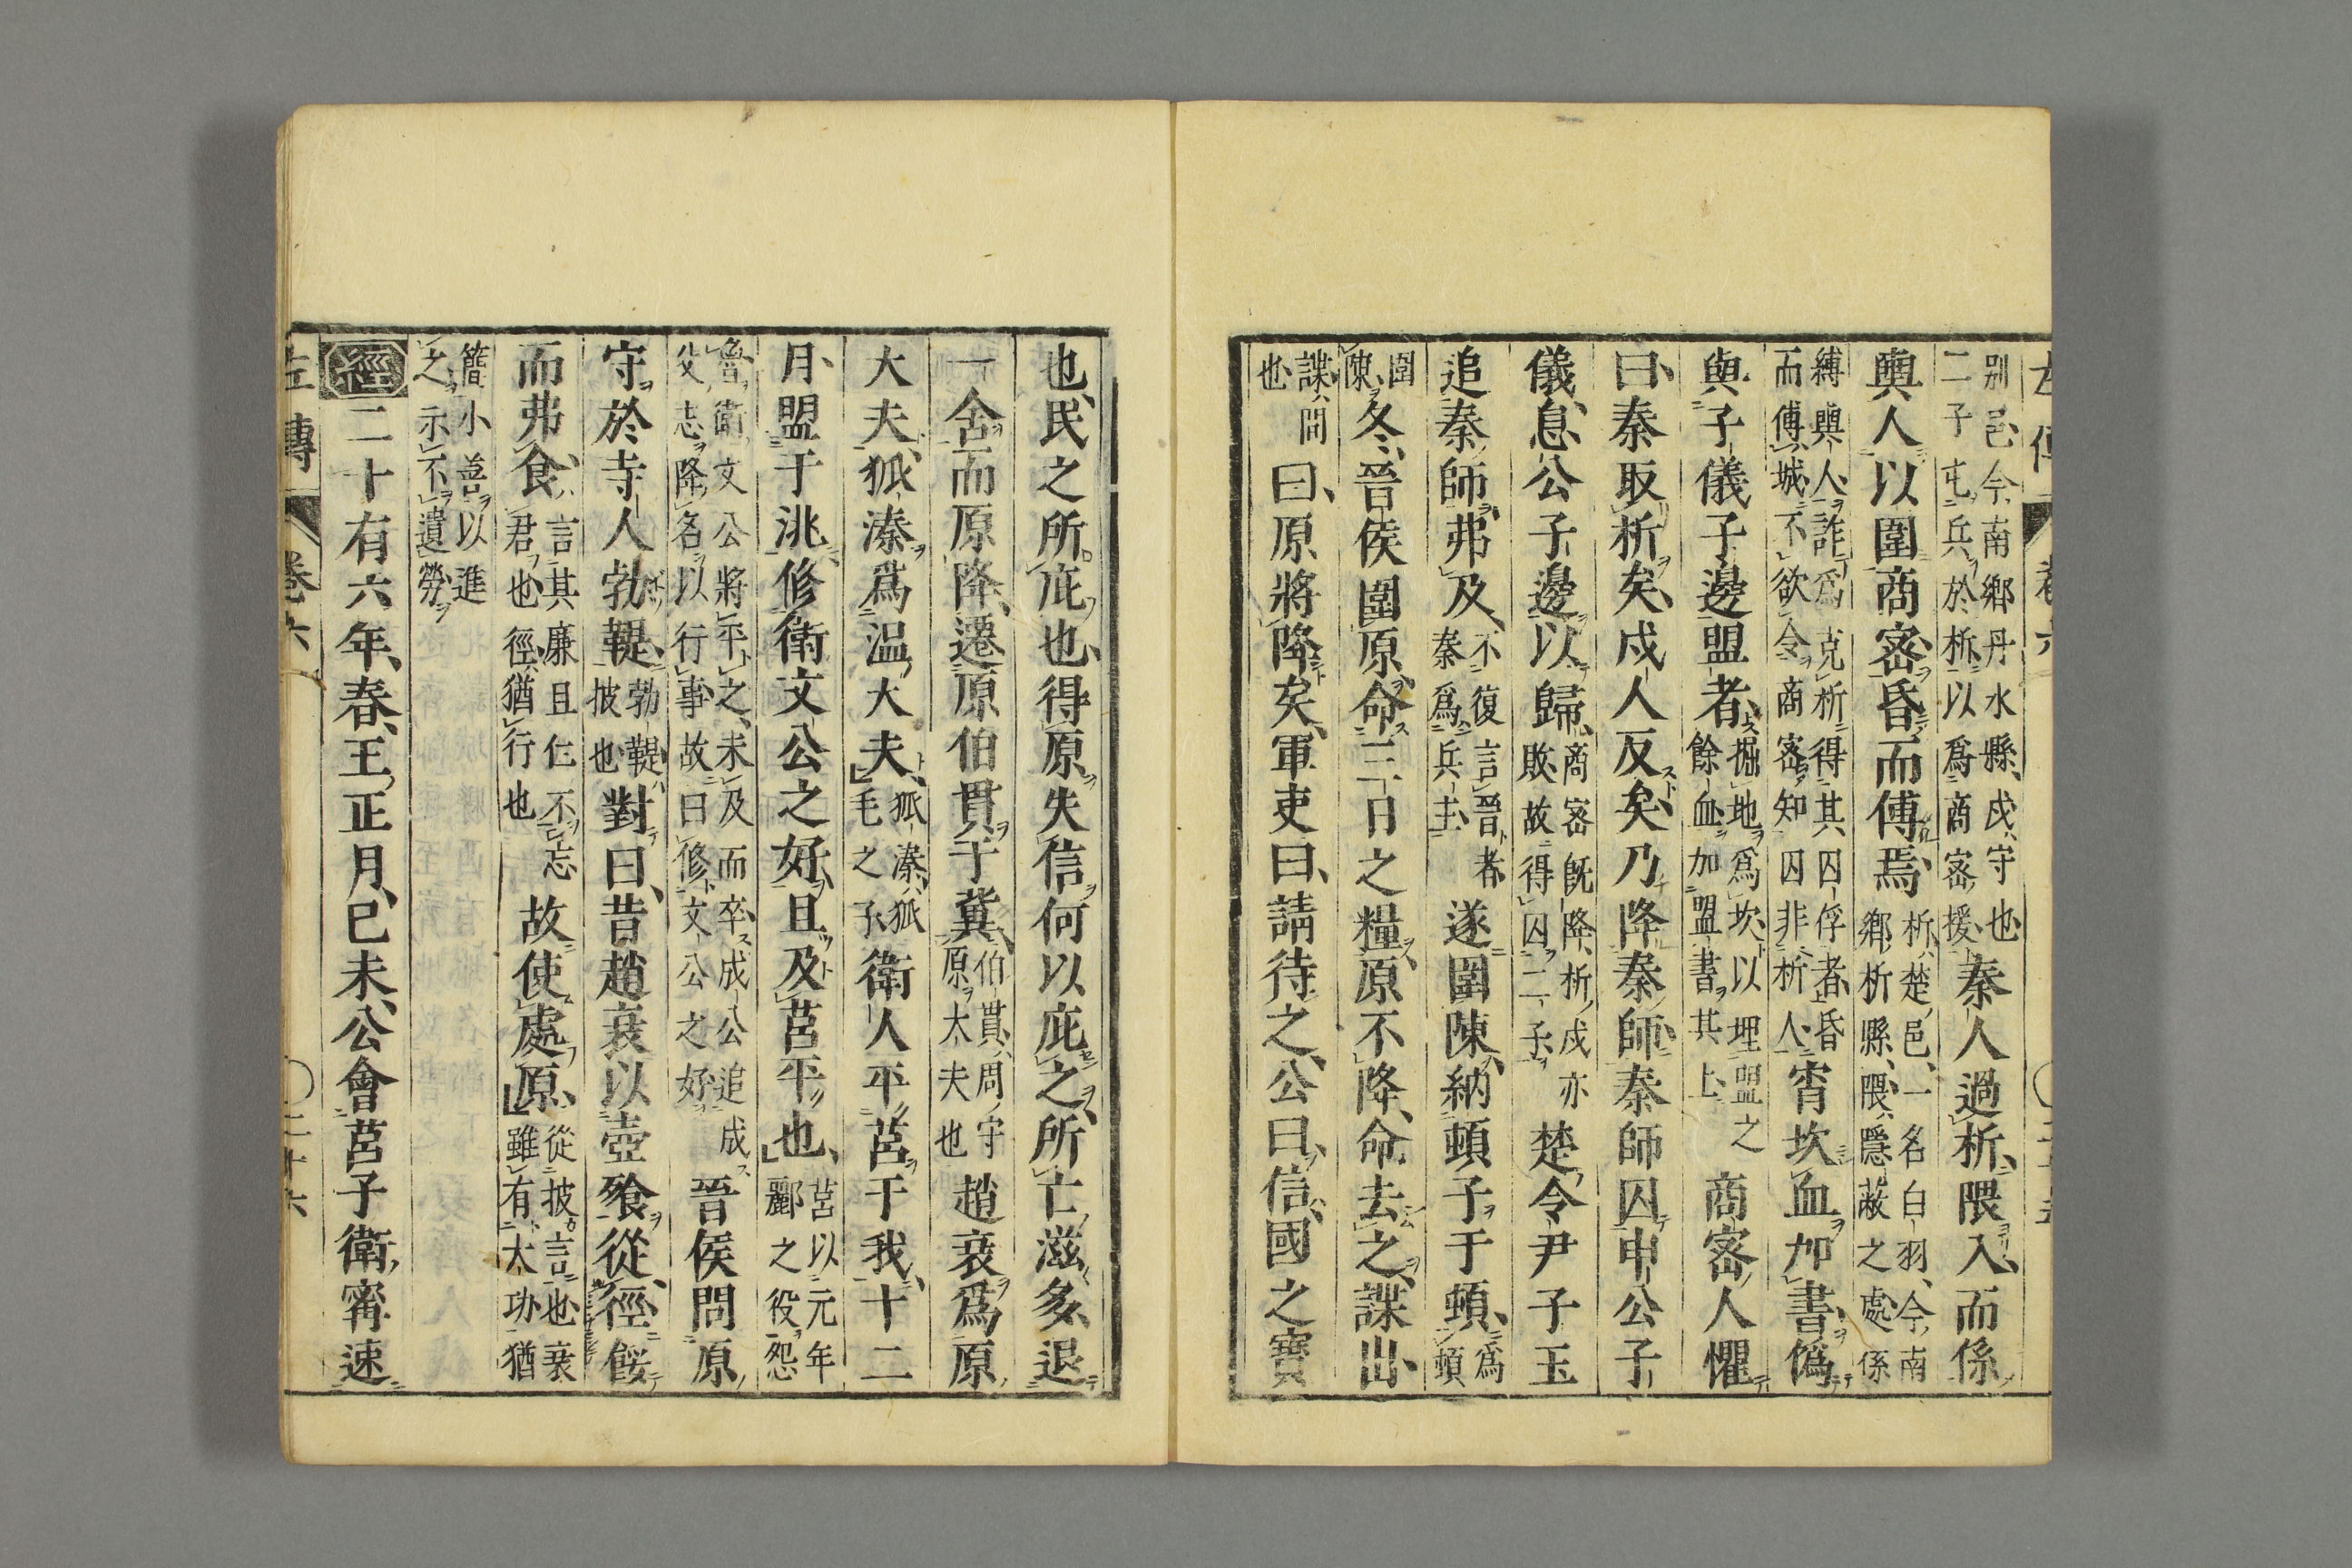 別邑今南鄉丹水縣戍守也
二子屯兵於析以爲商密援
秦人過析隈入而係
輿人以圍商密昏而傅焉
析楚邑一名白羽今南
鄉析縣隈隱蔽之處係
縛輿人詐爲克析得其囚俘者昏
而傅城不欲令商密知囚非析人
宵坎血加書僞
與子儀子邊盟者
掘地爲坎以埋盟之
餘血加盟書其上
商密人懼
曰秦取析矣戍人反矣乃降秦師秦師囚申公子
儀息公子邊以歸
商密既降析戍亦
敗故得囚二子
楚令尹子玉
追秦師弗及
不復言晉者
秦爲兵主
遂圍陳納頓子于頓
爲頓
圍陳
冬晉侯圍原命三日之糧原不降命去之諜出
諜間
也
曰原將降矣軍吏曰請待之公曰信國之寶
也民之所庇也得原失信何以庇之所亡滋多退
一舍而原降遷原伯貫于冀
伯貫周守
原大夫也
趙衰爲原
大夫狐溱爲温大夫
狐溱狐
毛之子
衛人平莒于我十二
月盟于洮修衛文公之好且及莒平也
莒以元年
酈之役怨
魯衛文公將平之未及而卒成公追成
父志降名以行事故曰修文公之好
晉侯問原
守於寺人勃鞮
勃鞮
披也
對曰昔趙衰以壺飱從徑餒
而弗食
言其廉且仁不忘
君也徑猶行也
故使處原
從披言也衰
雖有大功猶
簡小善以進
之示不遺勞
經二十有六年春王正月己未公會莒子衛甯速
左傳 卷六 二十六